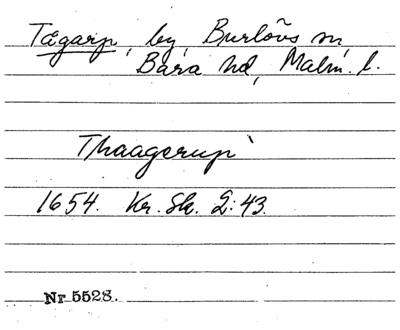 Tågarp, by, Burlövs sn,
Bara hd, Malm. l.
Thaagerup
1654. Kr. Sk. 2:43.
Nr 5528.